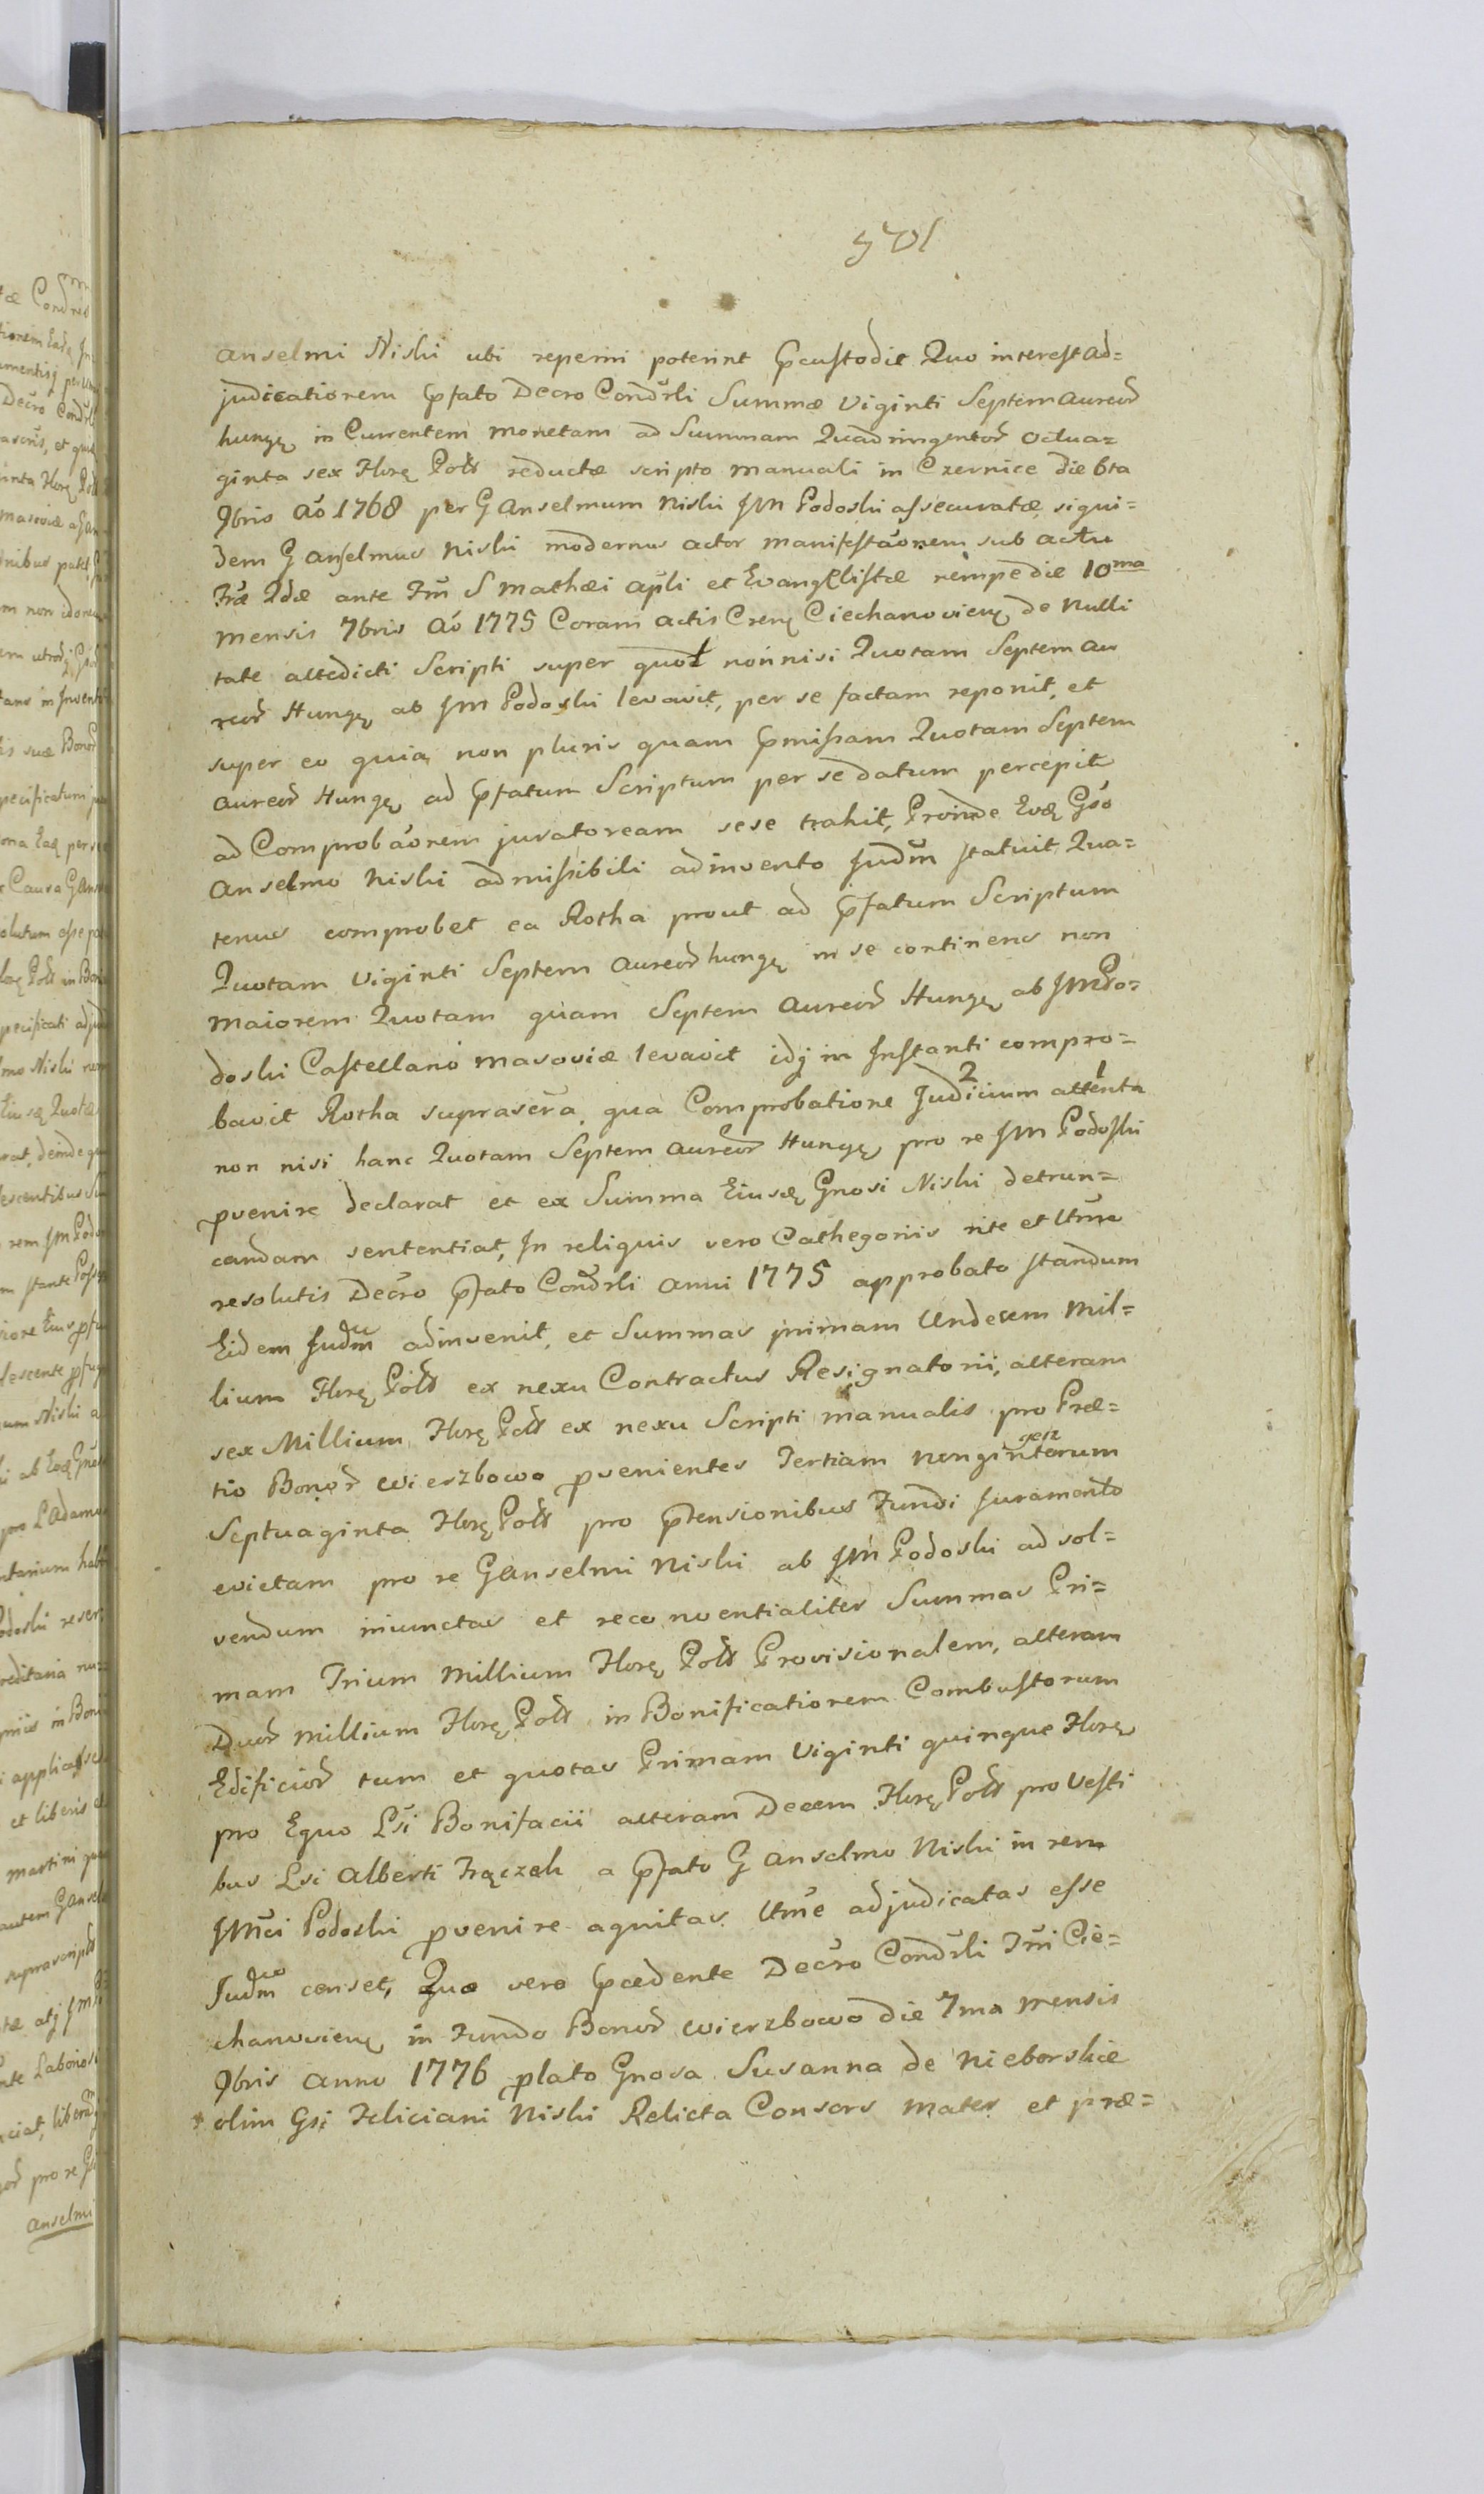 anselmi Niski ubi reperiri poterint pcustodit Quo interest ad=
judicationem pfato Decro Condrli Summæ Viginti Septem aureor
hungę in Currentem monetam ad Summam Quadringentor octua=
ginta sex Florę Poll reductæ scripto manuali in Czernice die 6ta
9bris aō 1768 per G Anselmum Niski JM Podoski assecuratæ, siqui=
dem G anselmus Niski modernus actor manifestāonem sub actu
Fræ 2dæ ante Fm S Mathæi apli et Evangelistæ nempe die 10ma
mensis 7bris aō 1775 Coram actis Crenę Ciechanovienę de Nulli
tate attedicti Scripti super quot nonnisi Quotam Septem au
reor Hungę ab JM Podoski levavit, per se factam reponit, et
super eo quia non pluris quam pmissam Quotam Septem
aureor Hungę ad pfatum Scriptum per se datum percepit
ad Comprobāonem juratoream sese trahit, Proinde Eodę Gso
Anselmo Niski admissibili adinvento Judm statuit Qua=
tenus comprobet ea Rotha prout ad pfatum Scriptum
Quotam Viginti Septem aureor hungę in se continens non
maiorem Quotam quam Septem Aureor Hungę ab JM Po=
doski Castellano Masoviæ levavit idq in Instanti compro=
bavit Rotha suprascrā, qua Comprobatione Judicium 2 attenta 1
non nisi hanc Quotam Septem aureor Hungę pro re JM Podoski
pvenire declarat et ex Summa Eiusdę Gnosi Niski detrun=
candam sententiat, In reliquis vero Cathegoriis rite et ltme
resolutis Decro pfato Condrli anni 1775 approbato standum
Eidem Judm adinvenit, et Summas primam Undecem Mil=
lium Florę Poll ex nexu Contractus Resignatorii, alteram
sex Millium Florę Poll ex nexu Scripti manualis pro Præ=
tio Bonor Wierzbowo pvenientes Tertiam nongintorum gen
Septuaginta Florę Poll pro ptensionibus Fundi Juramento
evictam pro re G Anselmi Niski ab JM Podoski adsol=
vendum iniunctas et reconventialiter Summas Pri=
mam Trium Millium Florę Poll Provisionalem, alteram
Duor Millium Florę Poll in Bonificationem Combustorum
Edificior tum et quotas Primam Viginti quinque Florę
pro Equo Lsi Bonifacii alteram Decem Florę Poll pro Vesti
bus Lsi Alberti Frączek a pfato G Anselmo Niski in rem
JMci Podoski pvenire agnitas ltme adjudicatas esse
Judm censet, Quo vero pcedente Decro Condrli Fri Cie=
chanovienę in Fundo Bonor Wierzbowo die 7ma mensis
9bris anno 1776 plato Gnosa Susanna de Nieborskie
olim Gsi Feliciani Niski Relicta Consors mater et præ=